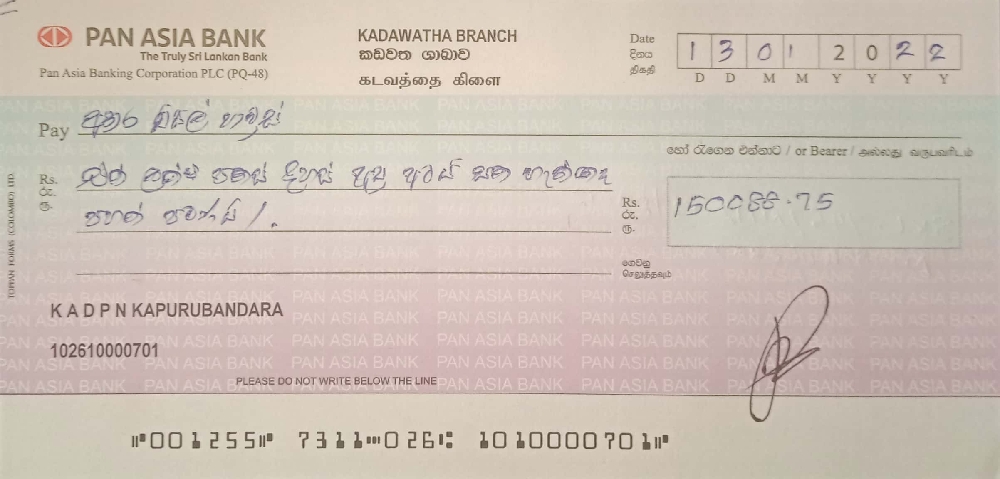 PAN ASIA BANK
The Truly Sri Lankan Bank
Pan Asia Banking Corporation PLC (PQ-48)
KADAWATHA BRANCH
කඩවත ශාඛාව
கடவத்தை கிளை
Date
දිනය
திகதி
1 3 0 1 2 0 2 2
D D M M Y Y Y Y
Pay
හෝ රැගෙන එන්නාට / or Bearer / அல்லது வருபவரிடம்
Rs.
රු.
ரூ.
පනස් දහස්
පහක් පමණයි /.
Rs.
රු.
ரூ.
150088.75
ගෙවනු
செலுத்தவும்
TOPPAN FORMS (COLOMBO) LTD.
K A D P N KAPURUBANDARA
102610000701
PLEASE DO NOT WRITE BELOW THE LINE
⑈001255⑈ 7311⑉026⑆ 1010000701⑈